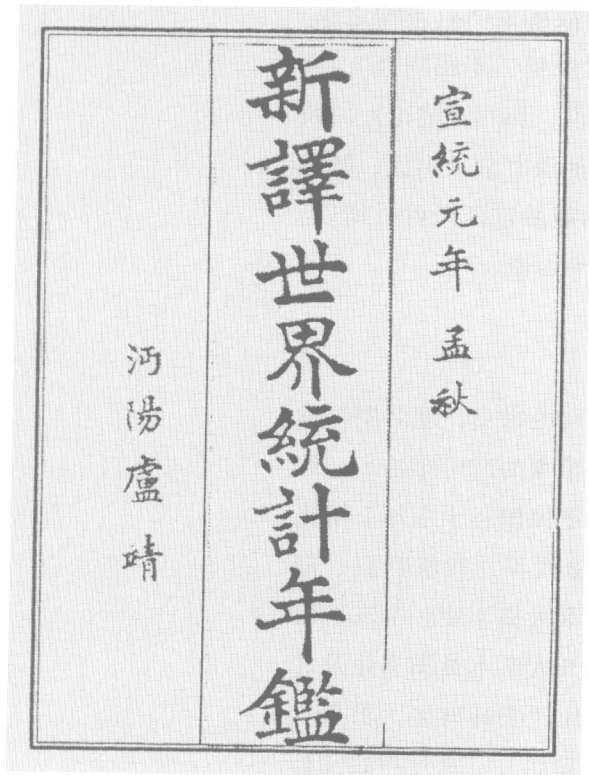 宣統元年 孟秋
新譯世界統計年鑑
沔陽盧靖